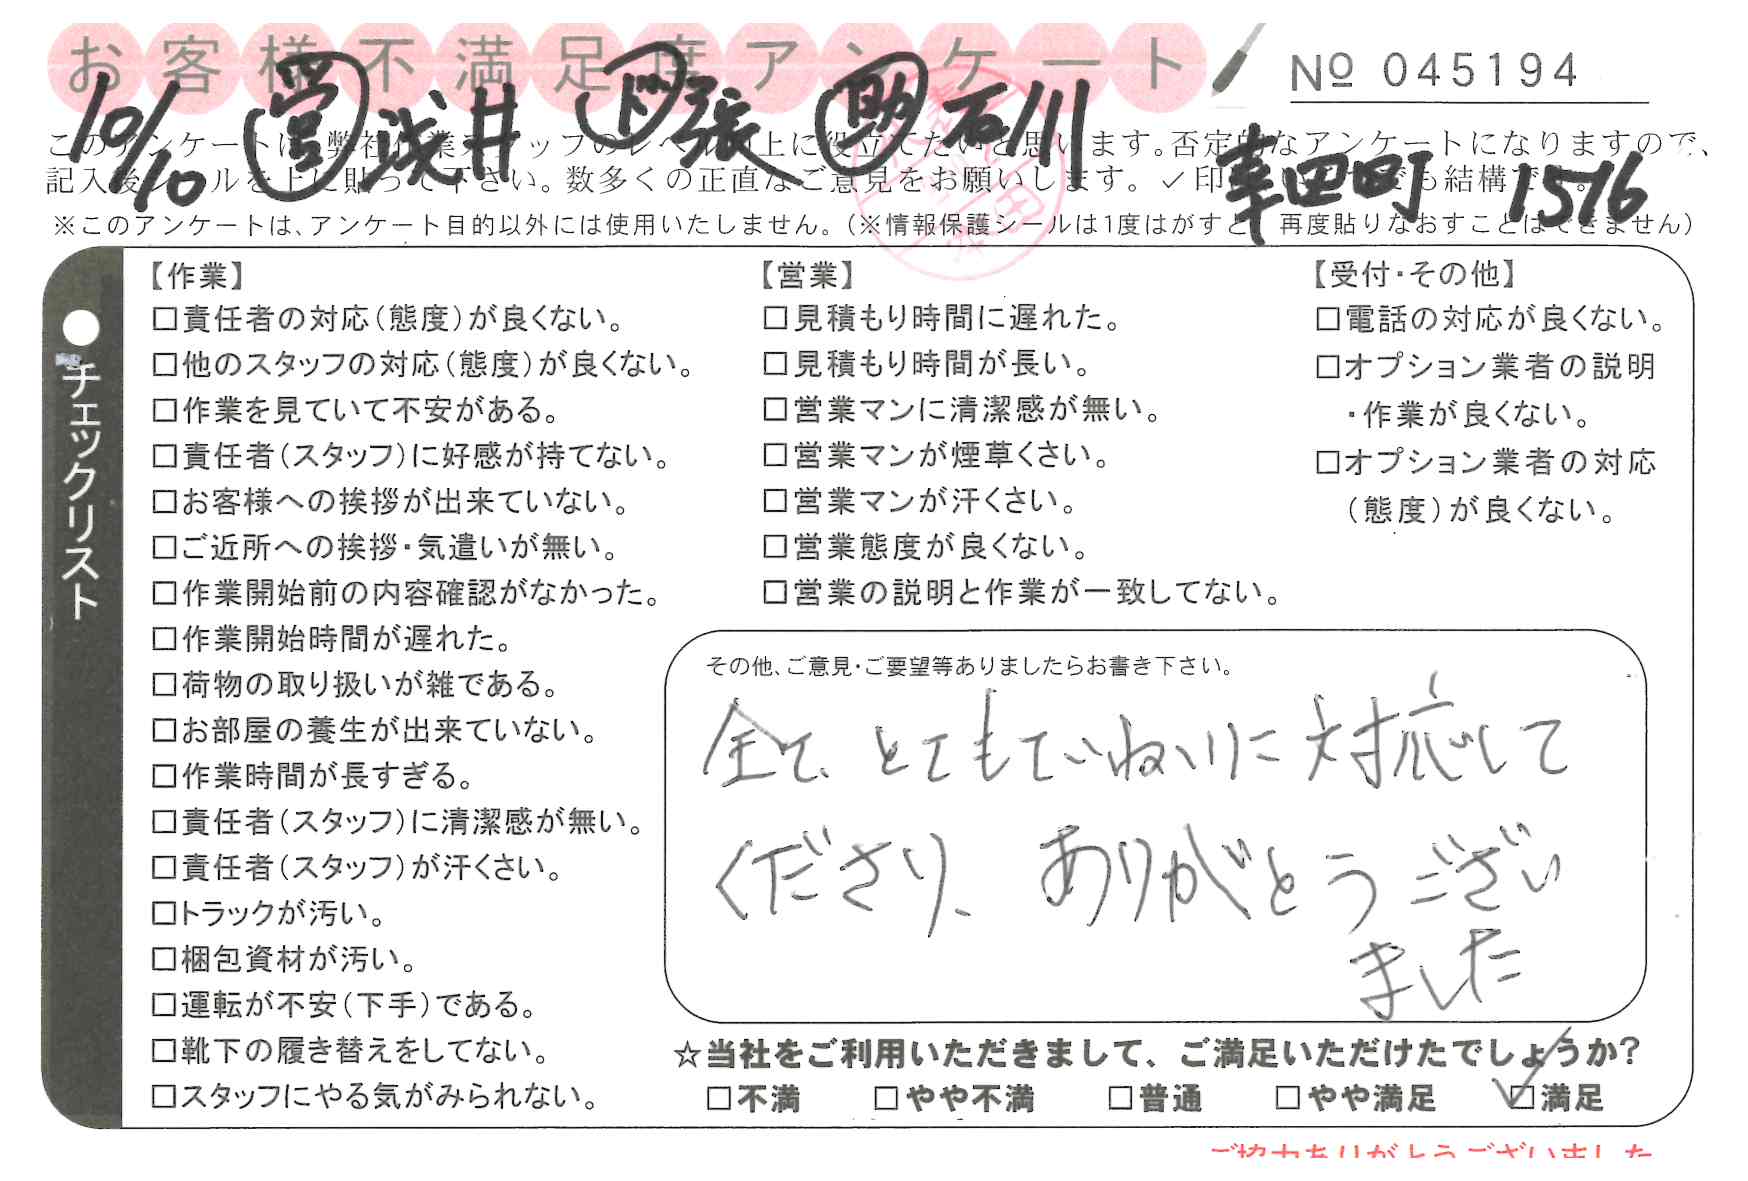 お客様不満足度アンケート
№ 045194
10/10 営 浅井 ド 張 助 石川
幸田町 1516
このアンケートは、弊社作業スタッフのレベル向上に役立てたいと思います。否定的なアンケートになりますので、
記入後シールを上に貼って下さい。数多くの正直なご意見をお願いします。✓印だけでも結構です。
※このアンケートは、アンケート目的以外には使用いたしません。（※情報保護シールは1度はがすと、再度貼りなおすことはできません）
●チェックリスト
【作業】
□責任者の対応（態度）が良くない。
□他のスタッフの対応（態度）が良くない。
□作業を見ていて不安がある。
□責任者（スタッフ）に好感が持てない。
□お客様への挨拶が出来ていない。
□ご近所への挨拶・気遣いが無い。
□作業開始前の内容確認がなかった。
□作業開始時間が遅れた。
□荷物の取り扱いが雑である。
□お部屋の養生が出来ていない。
□作業時間が長すぎる。
□責任者（スタッフ）に清潔感が無い。
□責任者（スタッフ）が汗くさい。
□トラックが汚い。
□梱包資材が汚い。
□運転が不安（下手）である。
□靴下の履き替えをしてない。
□スタッフにやる気がみられない。
【営業】
□見積もり時間に遅れた。
□見積もり時間が長い。
□営業マンに清潔感が無い。
□営業マンが煙草くさい。
□営業マンが汗くさい。
□営業態度が良くない。
□営業の説明と作業が一致してない。
【受付・その他】
□電話の対応が良くない。
□オプション業者の説明
・作業が良くない。
□オプション業者の対応
（態度）が良くない。
その他、ご意見・ご要望等ありましたらお書き下さい。
全て、とてもていねいに対応して
くださり、ありがとうござい
ました
☆当社をご利用いただきまして、ご満足いただけたでしょうか?
□不満 □やや不満 □普通 □やや満足 ☑満足
ご協力ありがとうございました